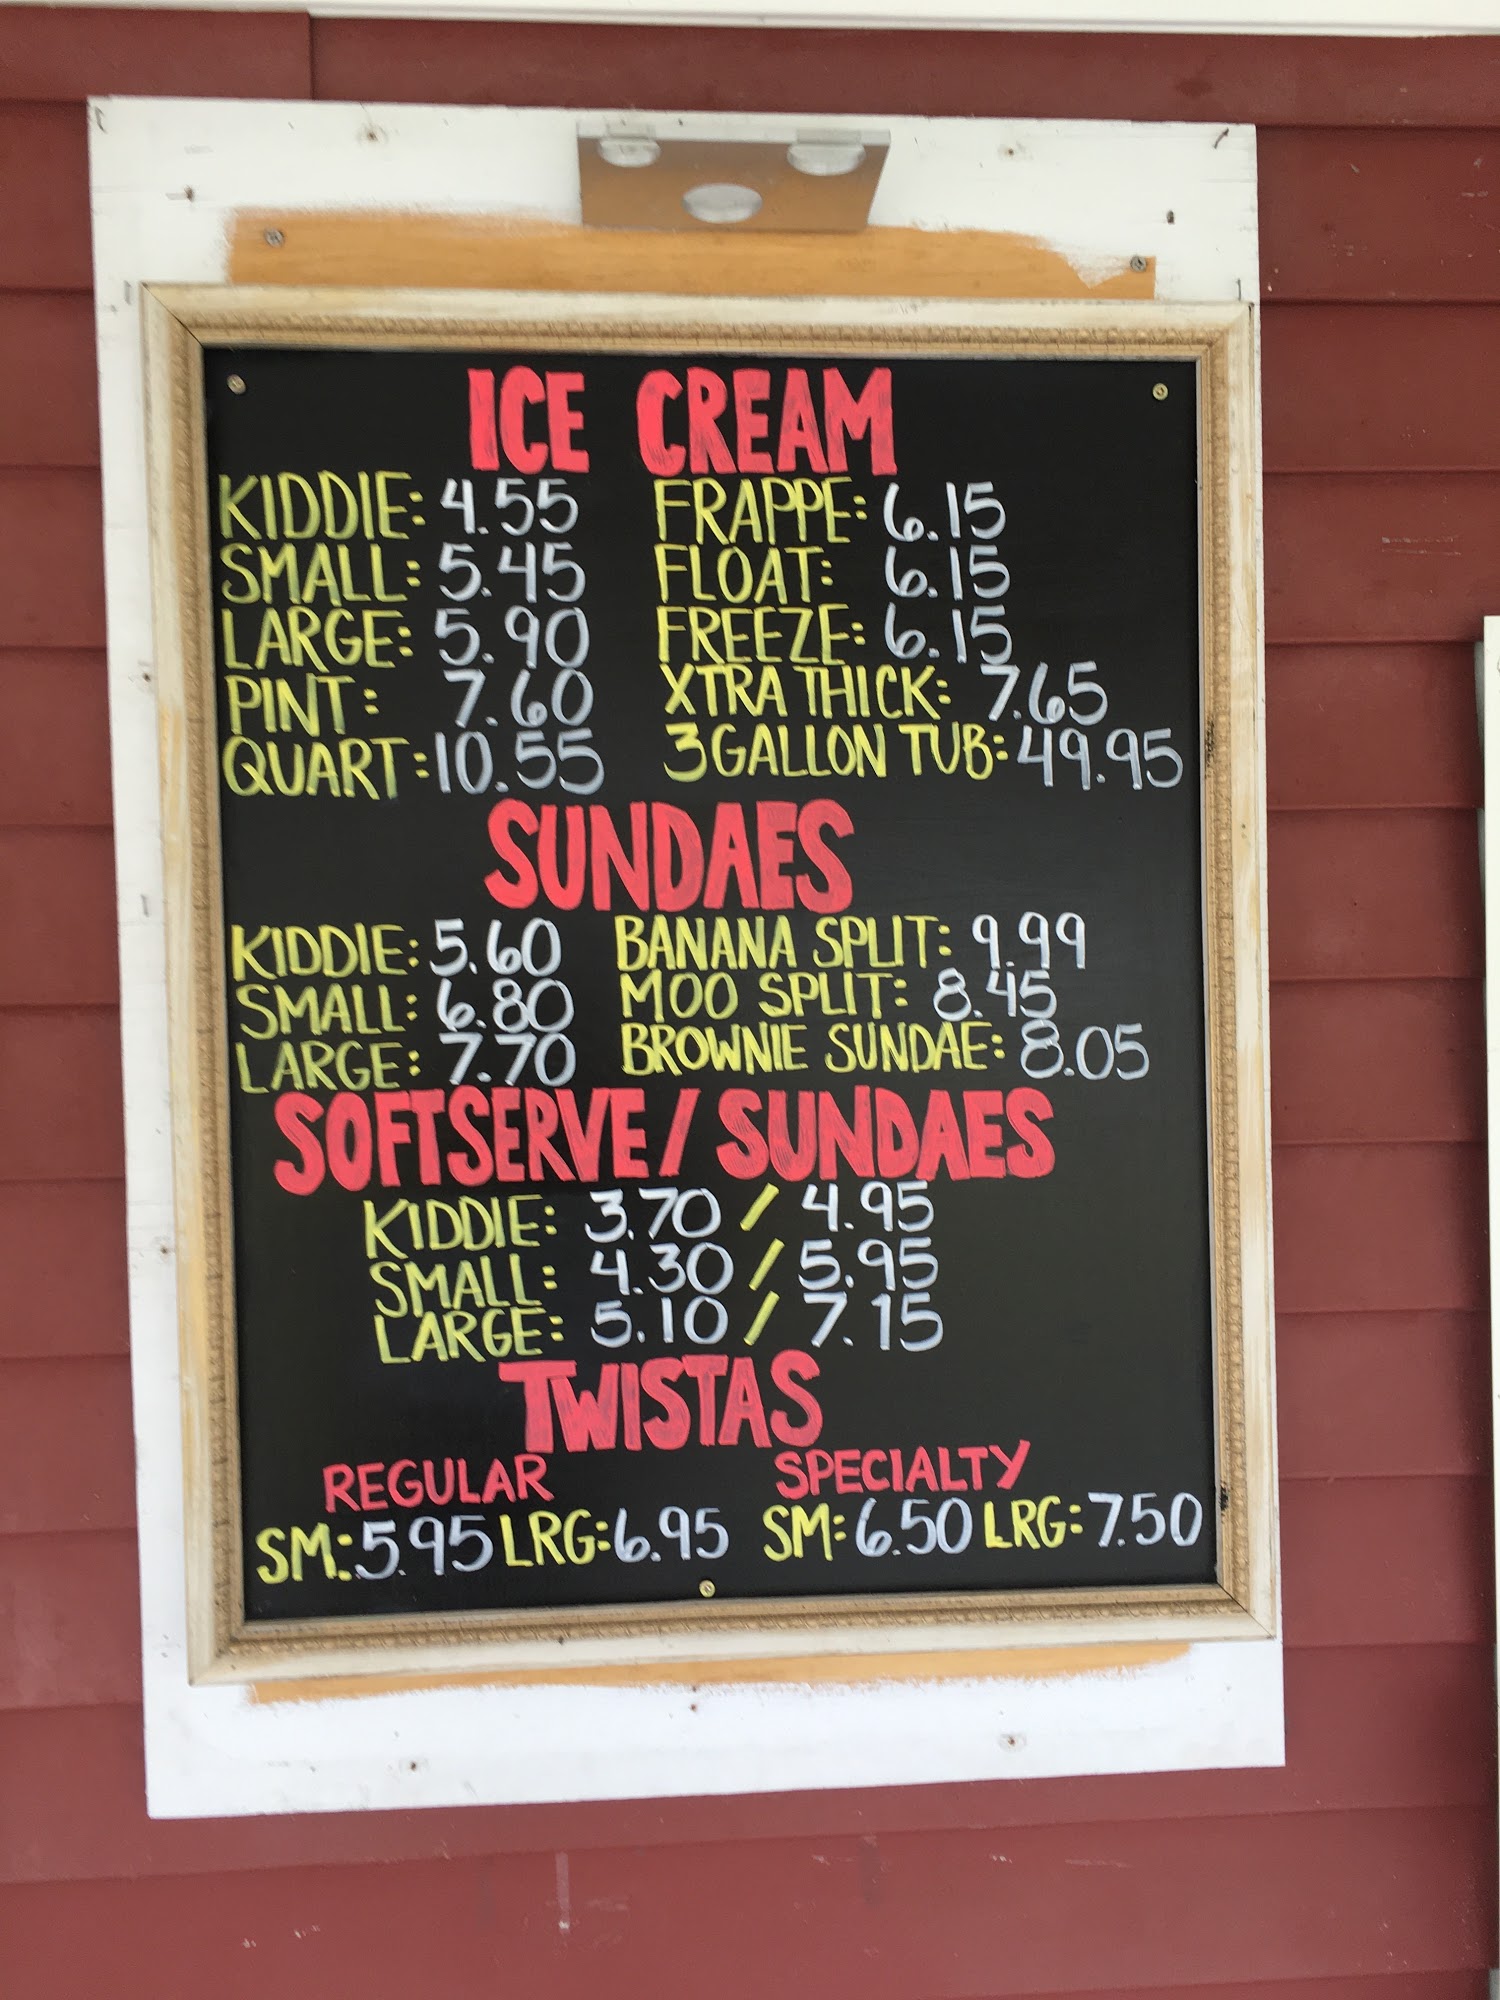 ICE CREAM
KIDDIE: 4.55 FRAPPE: 6.15
SMALL: 5.45 FLOAT: 6.15
LARGE: 5.90 FREEZE: 6.15
PINT: 7.60 XTRA THICK: 7.65
QUART: 10.55 3 GALLON TUB: 49.95
SUNDAES
KIDDIE: 5.60 BANANA SPLIT: 9.99
SMALL: 6.80 MOO SPLIT: 8.45
LARGE: 7.70 BROWNIE SUNDAE: 8.05
SOFTSERVE / SUNDAES
KIDDIE: 3.70 / 4.95
SMALL: 4.30 / 5.95
LARGE: 5.10 / 7.15
TWISTAS
REGULAR SPECIALTY
SM: 5.95 LRG: 6.95 SM: 6.50 LRG: 7.50